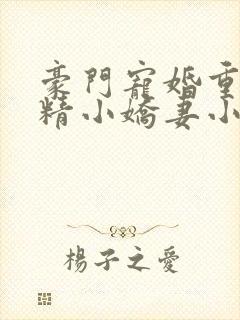 豪門寵婚重
精小嬌妻小
楊子之愛